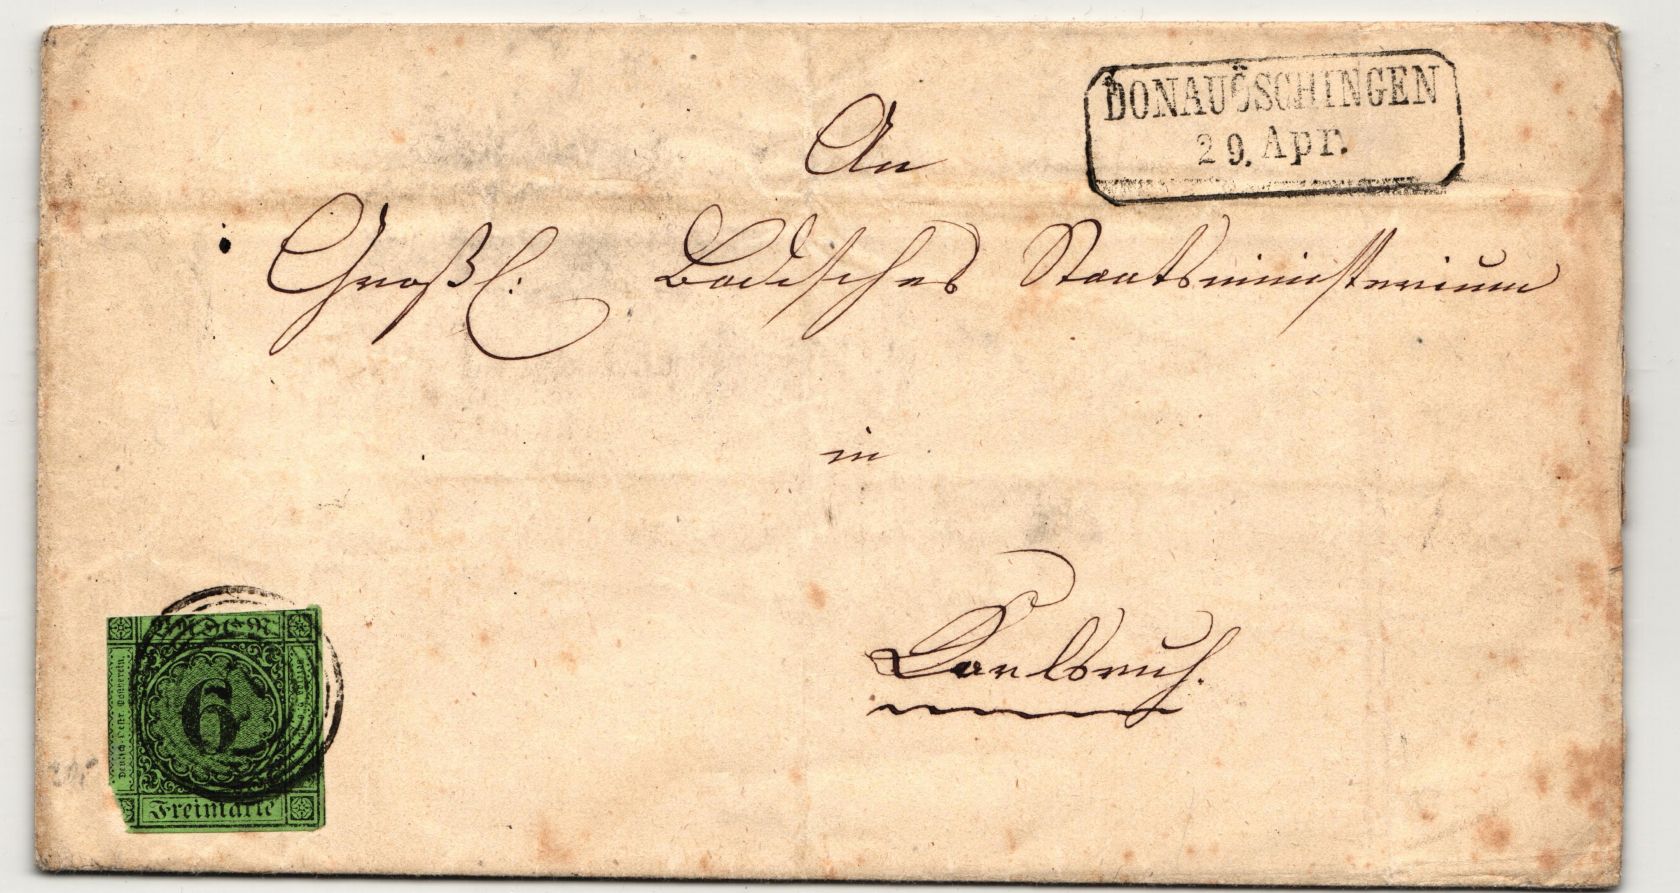 DONAUÖSCHINGEN
29. Apr.
An
Großh: Badisches Staatsministerium
in
Karlsruh.
BADEN
Deutsch-Oestr. Postverein.
6
Freimarke